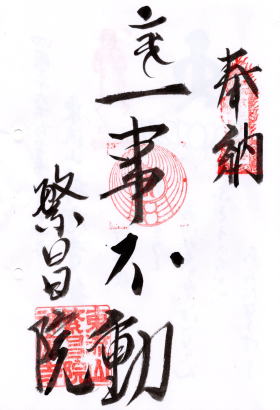 奉納
一事不動
繁昌院